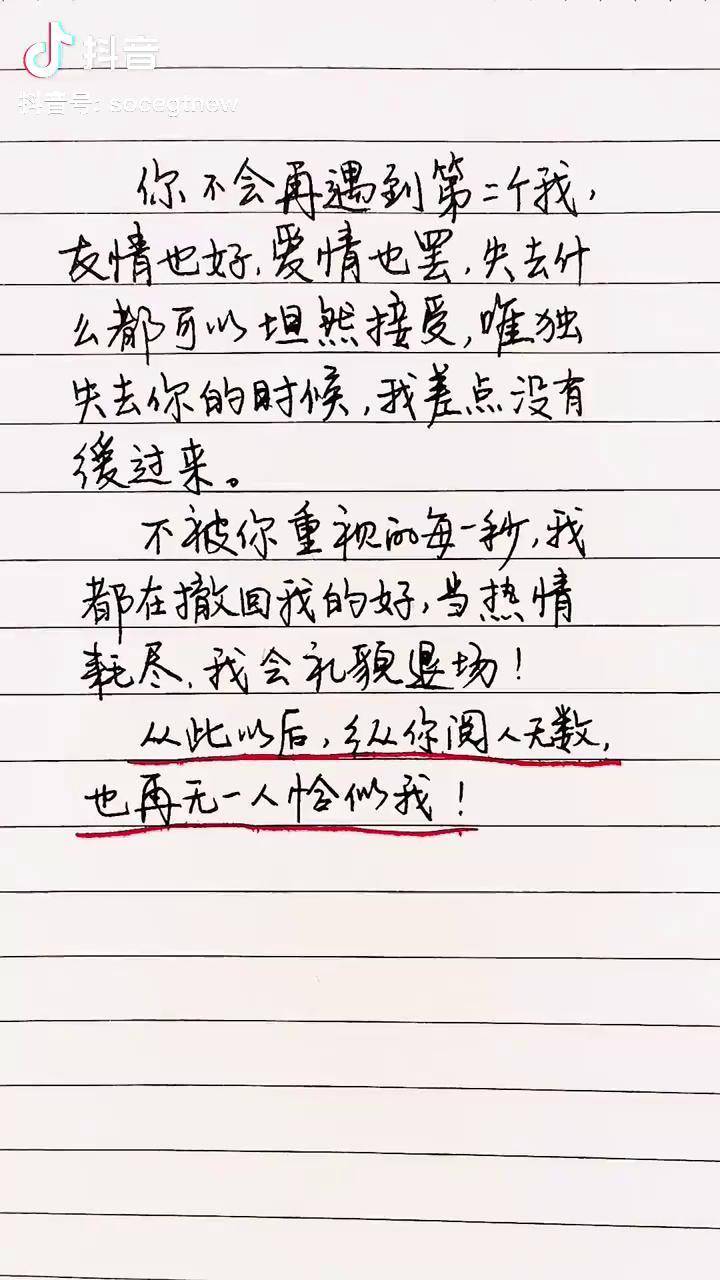 抖音
抖音号: socegtnew
你不会再遇到第二个我,
友情也好,爱情也罢,失去什
么都可以坦然接受,唯独
失去你的时候,我差点没有
缓过来。
不被你重视的每一秒,我
都在撤回我的好,当热情
耗尽,我会礼貌退场!
从此以后,纵你阅人无数,
也再无一人恰似我!